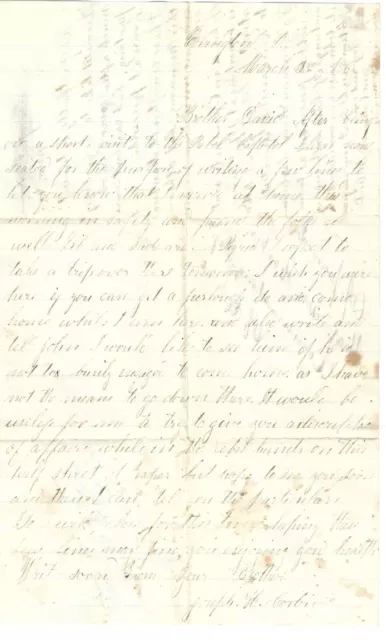 March
Brother David After being
on a short visit to the Rebel Capitol I am now
seated for the purpose of writing a few lines to
let you know that I arrived at home this
morning in safety and found the folks all
well I expect to
take a trip over there tomorrow I wish you were
here if you can get a furlough do and come
home whilst I am here and also write and
tell John I would like to see him if he is
not to busily engaged to come home as I have
not the means to go down there It would be
useless for me to try to give you a description
of affairs while in the rebs hands on this
half sheet of paper but hope to see you soon
and then I can tell you the particulars
So for this time hoping this
few lines may find you enjoying good health
Write soon from your Brother
Joseph H. Corbin